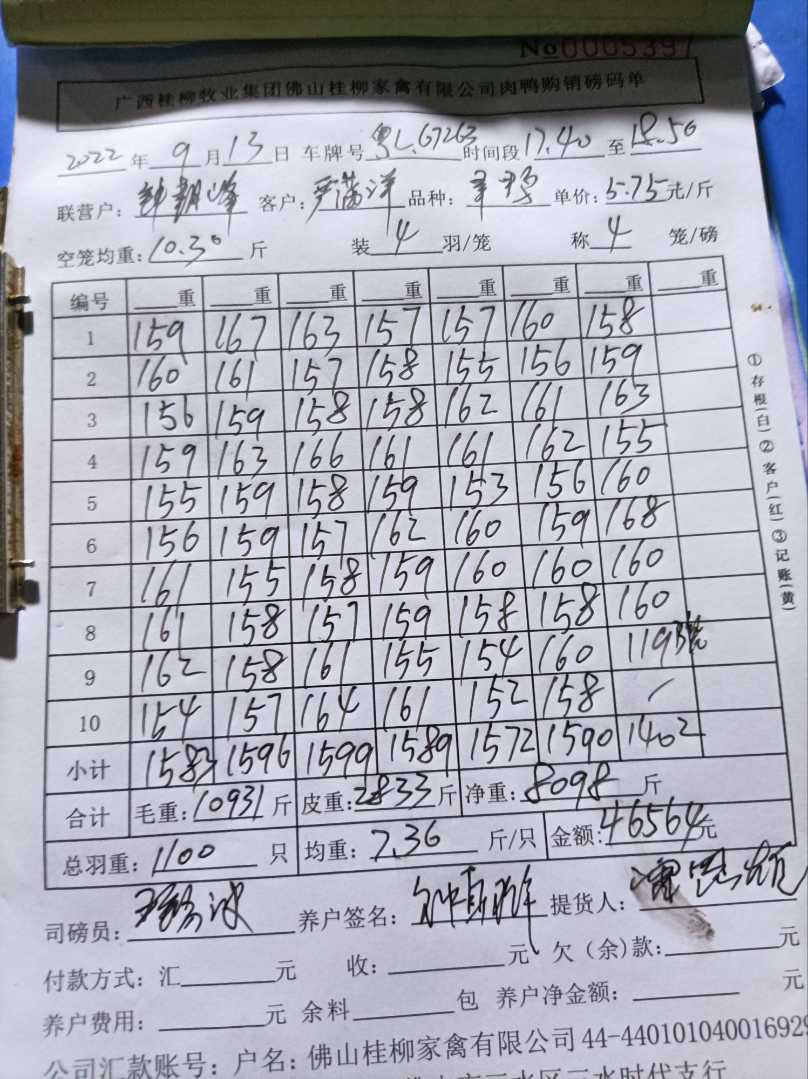 No 0005397
广西桂柳牧业集团佛山桂柳家禽有限公司肉鸭购销磅码单
2022 年 9 月 13 日 车牌号 粤L.67263 时间段 17.40 至 18.50
联营户: 客户: 严满洋 品种: 单价: 5.75 元/斤
空笼均重: 10.30 斤 装 4 羽/笼 称 4 笼/磅
编号 重 重 重 重 重 重 重 重
1 159 167 163 157 157 160 158
2 160 161 157 158 155 156 159
3 156 159 158 158 162 161 163
4 159 163 166 161 161 162 155
5 155 159 158 159 153 156 160
6 156 159 157 162 160 159 168
7 161 155 158 159 160 160 160
8 161 158 157 159 158 158 160
9 162 158 161 155 154 160 119
10 154 157 164 161 152 158 /
小计 1583 1596 1599 1589 1572 1590 1402
合计 毛重: 10931 斤 皮重: 2833 斤 净重: 8098 斤
总羽重: 1100 只 均重: 7.36 斤/只 金额: 46564 元
司磅员: 养户签名: 提货人:
付款方式: 汇 元 收: 元 欠(余)款: 元
养户费用: 元 余料 包 养户净金额: 元
公司汇款账号: 户名: 佛山桂柳家禽有限公司 44-440101040016929
三水区三水时代支行
①存根(白)②客户(红)③记账(黄)